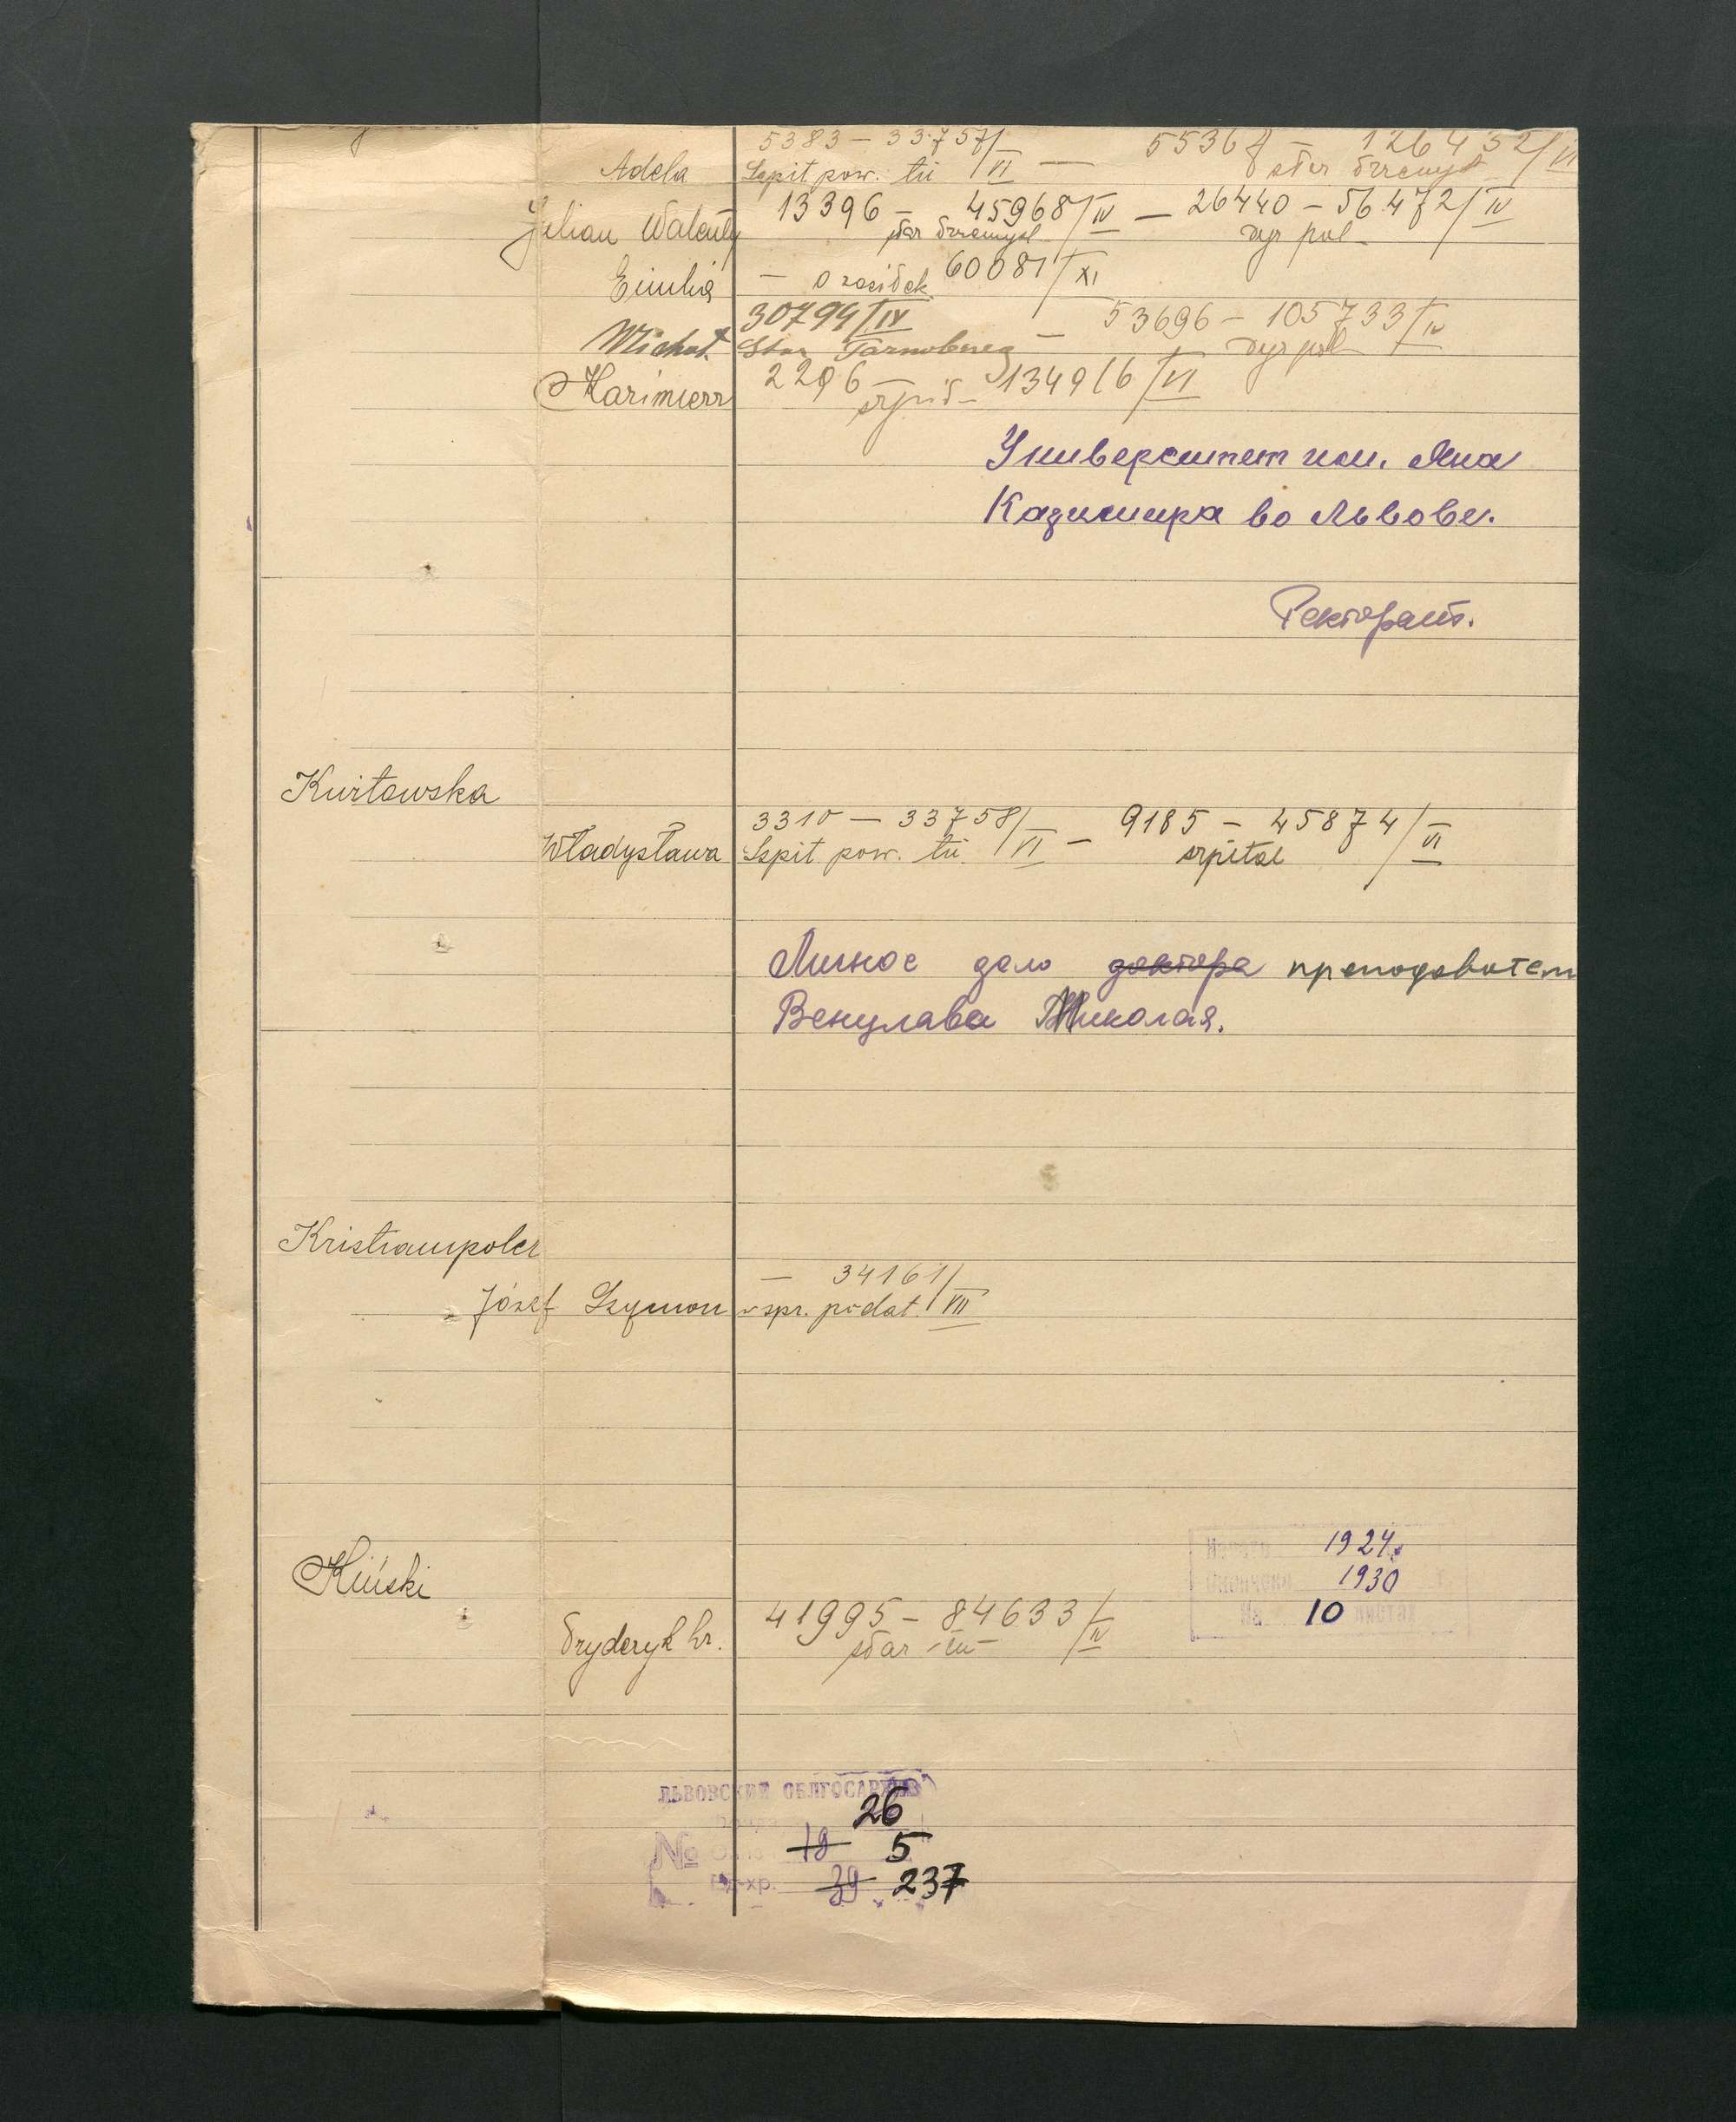 5383 – 33757/VI — 55367 – 126452/VI
Adela Szpit pow. tu star Przemyśl
13396 – 45968/IV — 26440 – 56472/IV
Julian Walenty star Przemysl dyr pol
Emilia — o zasiłek 60081/XI
30794/IV – 53696 – 105733/IV
Michał Star Tarnobrzeg dyr pol
Kazimierz 2296 – 134916/VI
Университет им. Яна
Казимира во Львове.
Ректорат.
Kwitowska
3310 – 33758/VI – 9185 – 45874/VI
Władysława Szpit pow. tu. szpital
Личное дело доктора преподавателя
Венулава Николая.
Kristianpoler
— 34161/VII
Józef Szymon w spr. podat.
Kiński
1924
1930
На 10 листах
41995 – 84633/IV
Fryderyk hr. star tu
ЛЬВОВСКИЙ ОБЛГОСАРХИВ
26
№ 19 5
Ед. хр. 39 237